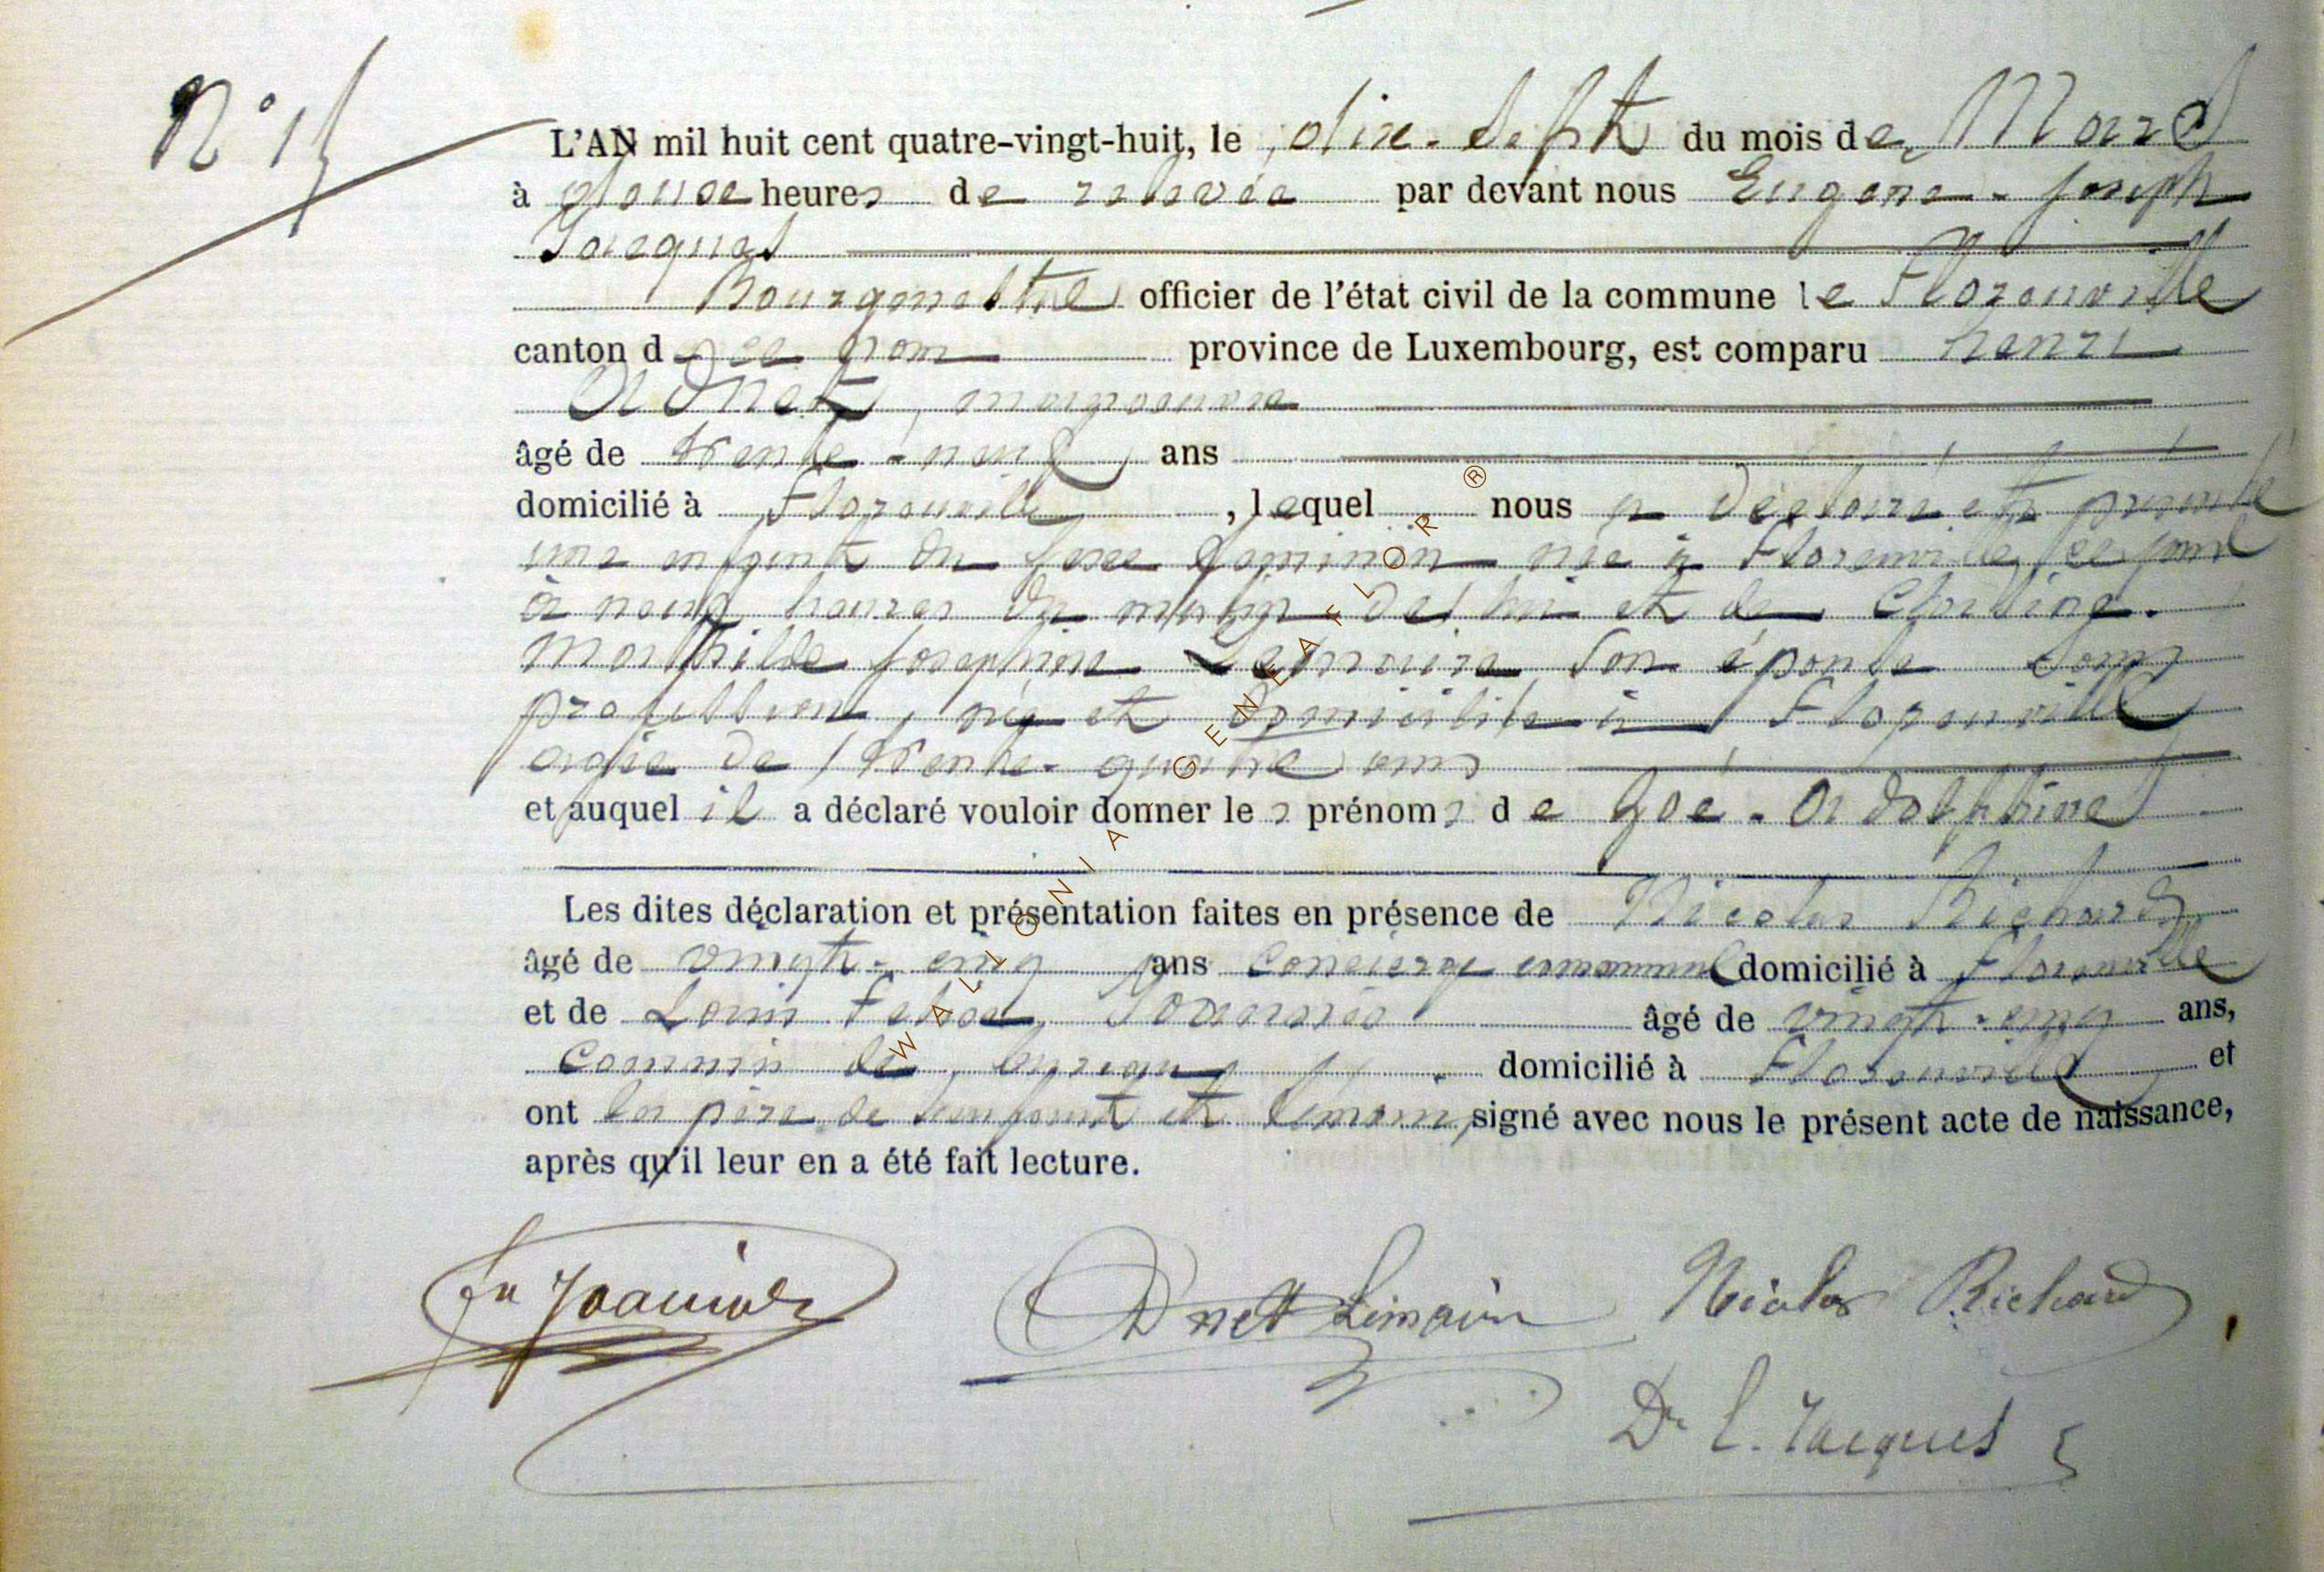 N° 15
L'AN mil huit cent quatre-vingt-huit, le dix-sept du mois de Mars
à heures de relevée par devant nous Eugene-Joseph
Jacques
Bourgmestre officier de l'état civil de la commune de Florenville
canton d ce nom province de Luxembourg, est comparu henri
âgé de trente-neuf ans
domicilié à Florenville, lequel nous a déclaré et présenté
une enfant du sexe féminin née à Florenville ce jour
à neuf heures du matin de lui et de
Mathilde Josephine Lemaire son épouse sans
profession, née et domiciliée à Florenville
agée de trente-quatre ans
et auquel il a déclaré vouloir donner les prénoms de Zoé-Adolphine
Les dites déclaration et présentation faites en présence de Nicolas Richard
âgé de vingt-cinq ans concierge communal domicilié à Florenville
et de Louis âgé de vingt-cinq ans,
Commis de bureau domicilié à Florenville et
ont le père de l'enfant et témoins, signé avec nous le présent acte de naissance,
après qu'il leur en a été fait lecture.
Nicolas Richard
Dr E. Jacques
WALLONIA GENEAFLOR ®